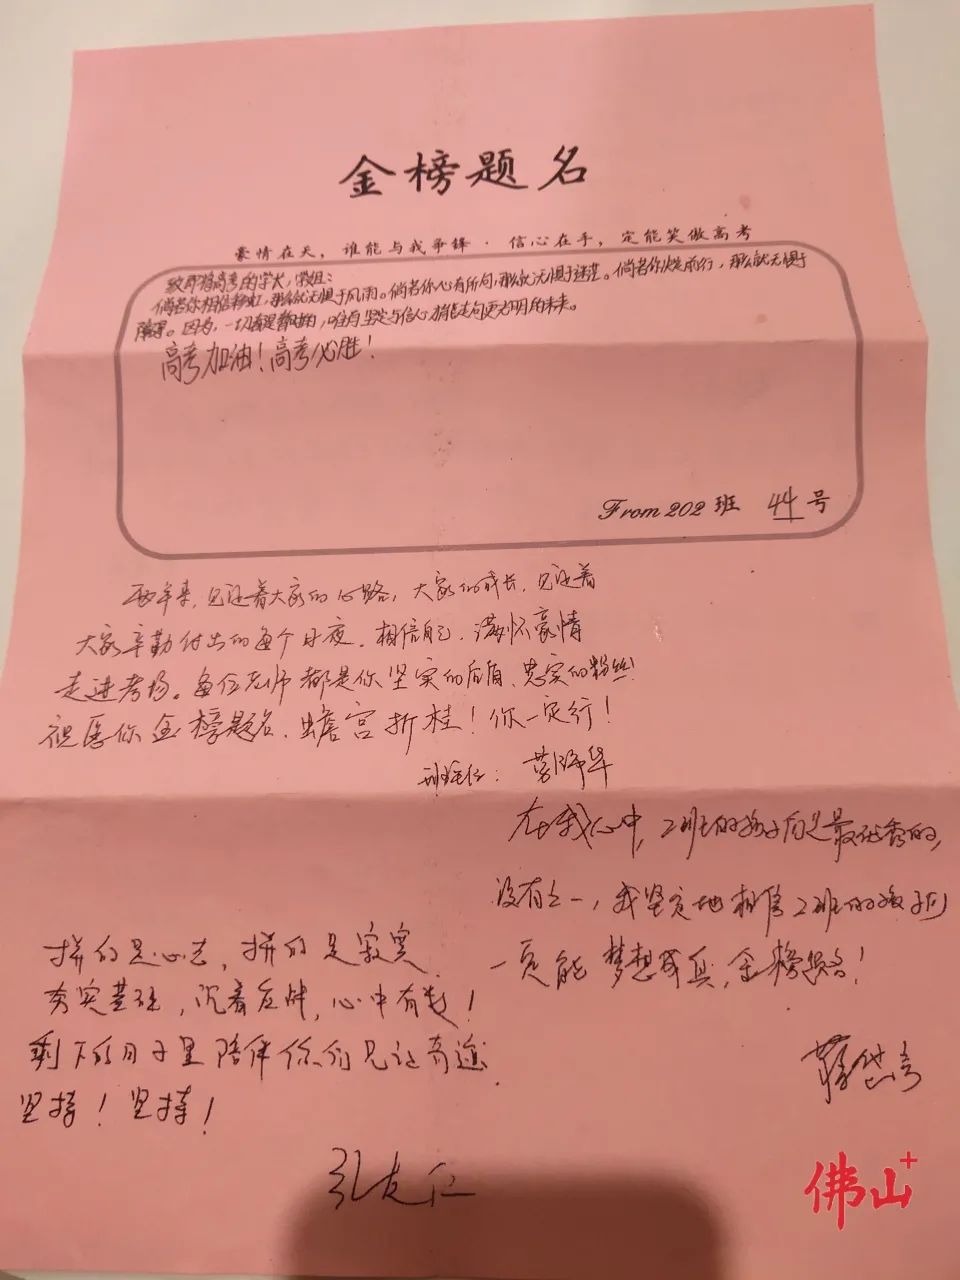 金榜题名
豪情在天，谁能与我争锋·信心在手，定能笑傲高考
致即将高考的学长、学姐：
倘若你相信彩虹，那么就无惧于风雨。倘若你心有所向，那么就无惧于迷茫。倘若你 前行，那么就无惧于
障碍。因为，一切都是暂时的，唯有坚定与信心才能走向更光明的未来。
高考加油！高考必胜！
From 202 班 44 号
两年来，见证着大家的心路，大家的成长，见证着
大家辛勤付出的每个日夜。相信自己，满怀豪情
走进考场。每位老师都是你坚实的后盾、忠实的粉丝！
祝愿你金榜题名、蟾宫折桂！你一定行！
班主任：
在我心中，2班的孩子们是最优秀的，
没有之一，我坚定地相信2班的孩子们
一定能梦想成真，金榜题名！
拼的是心志，拼的是寂寞
夯实基础，沉着应战，心中有
剩下的日子里陪伴你们见证奇迹
坚持！坚持！
佛山+